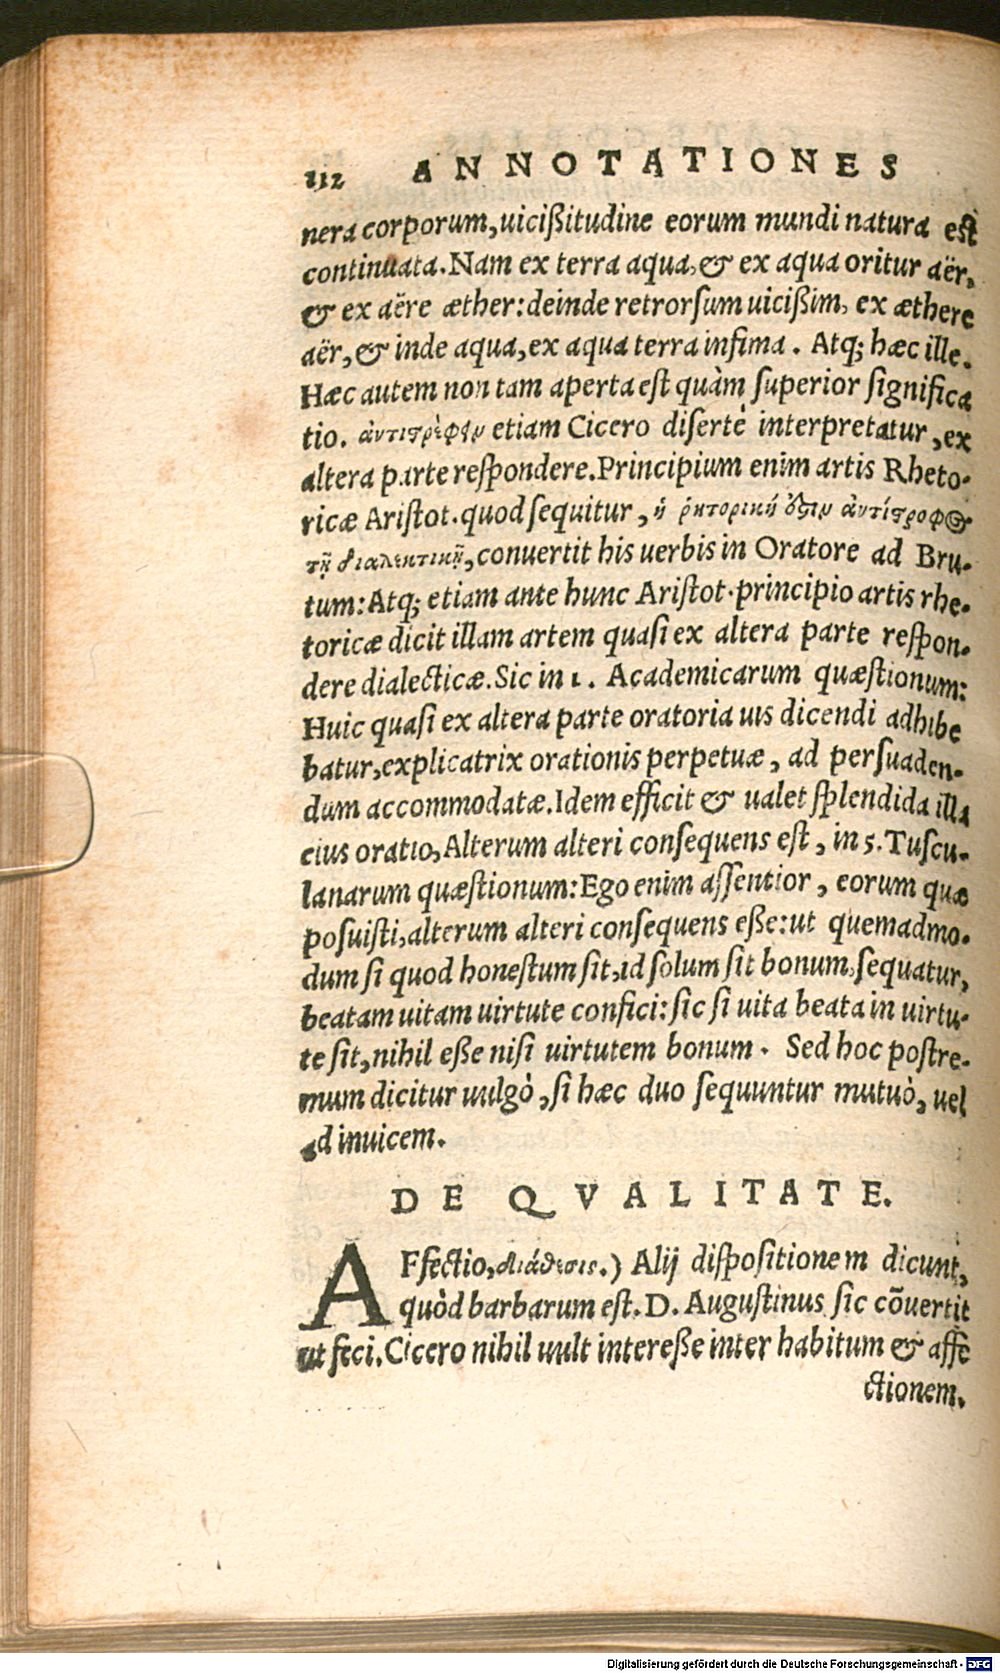 112 ANNOTATIONES
nera corporum, uicißitudine eorum mundi natura est
continuata. Nam ex terra aqua, & ex aqua oritur aër,
& ex aëre æther: deinde retrorsum uicißim, ex æthere
aër, & inde aqua, ex aqua terra infima. Atq; hæc ille.
Hæc autem non tam aperta est quàm superior significa
tio. ἀντιστρέφειν etiam Cicero disertè interpretatur, ex
altera parte respondere. Principium enim artis Rheto-
ricæ Aristot. quod sequitur, ἡ ῥητορική ἐστιν ἀντίστροφος
τῇ διαλεκτικῇ, conuertit his uerbis in Oratore ad Bru-
tum: Atq; etiam ante hunc Aristot. principio artis rhe-
toricæ dicit illam artem quasi ex altera parte respon-
dere dialecticæ. Sic in 1. Academicarum quæstionum:
Huic quasi ex altera parte oratoria uis dicendi adhibe
batur, explicatrix orationis perpetuæ, ad persuaden-
dum accommodatæ. Idem efficit & ualet splendida illa
eius oratio, Alterum alteri consequens est, in 5. Tuscu-
lanarum quæstionum: Ego enim assentior, eorum quæ
posuisti, alterum alteri consequens eße: ut quemadmo-
dum si quod honestum sit, id solum sit bonum, sequatur,
beatam uitam uirtute confici: sic si uita beata in uirtu-
te sit, nihil eße nisi uirtutem bonum. Sed hoc postre-
mum dicitur uulgò, si hæc duo sequuntur mutuò, uel
ad inuicem.
DE QVALITATE.
AFfectio, διάθεσις.) Alij dispositionem dicunt,
quòd barbarum est. D. Augustinus sic cōuertit
ut feci. Cicero nihil uult intereße inter habitum & affe
ctionem.
Digitalisierung gefördert durch die Deutsche Forschungsgemeinschaft - DFG